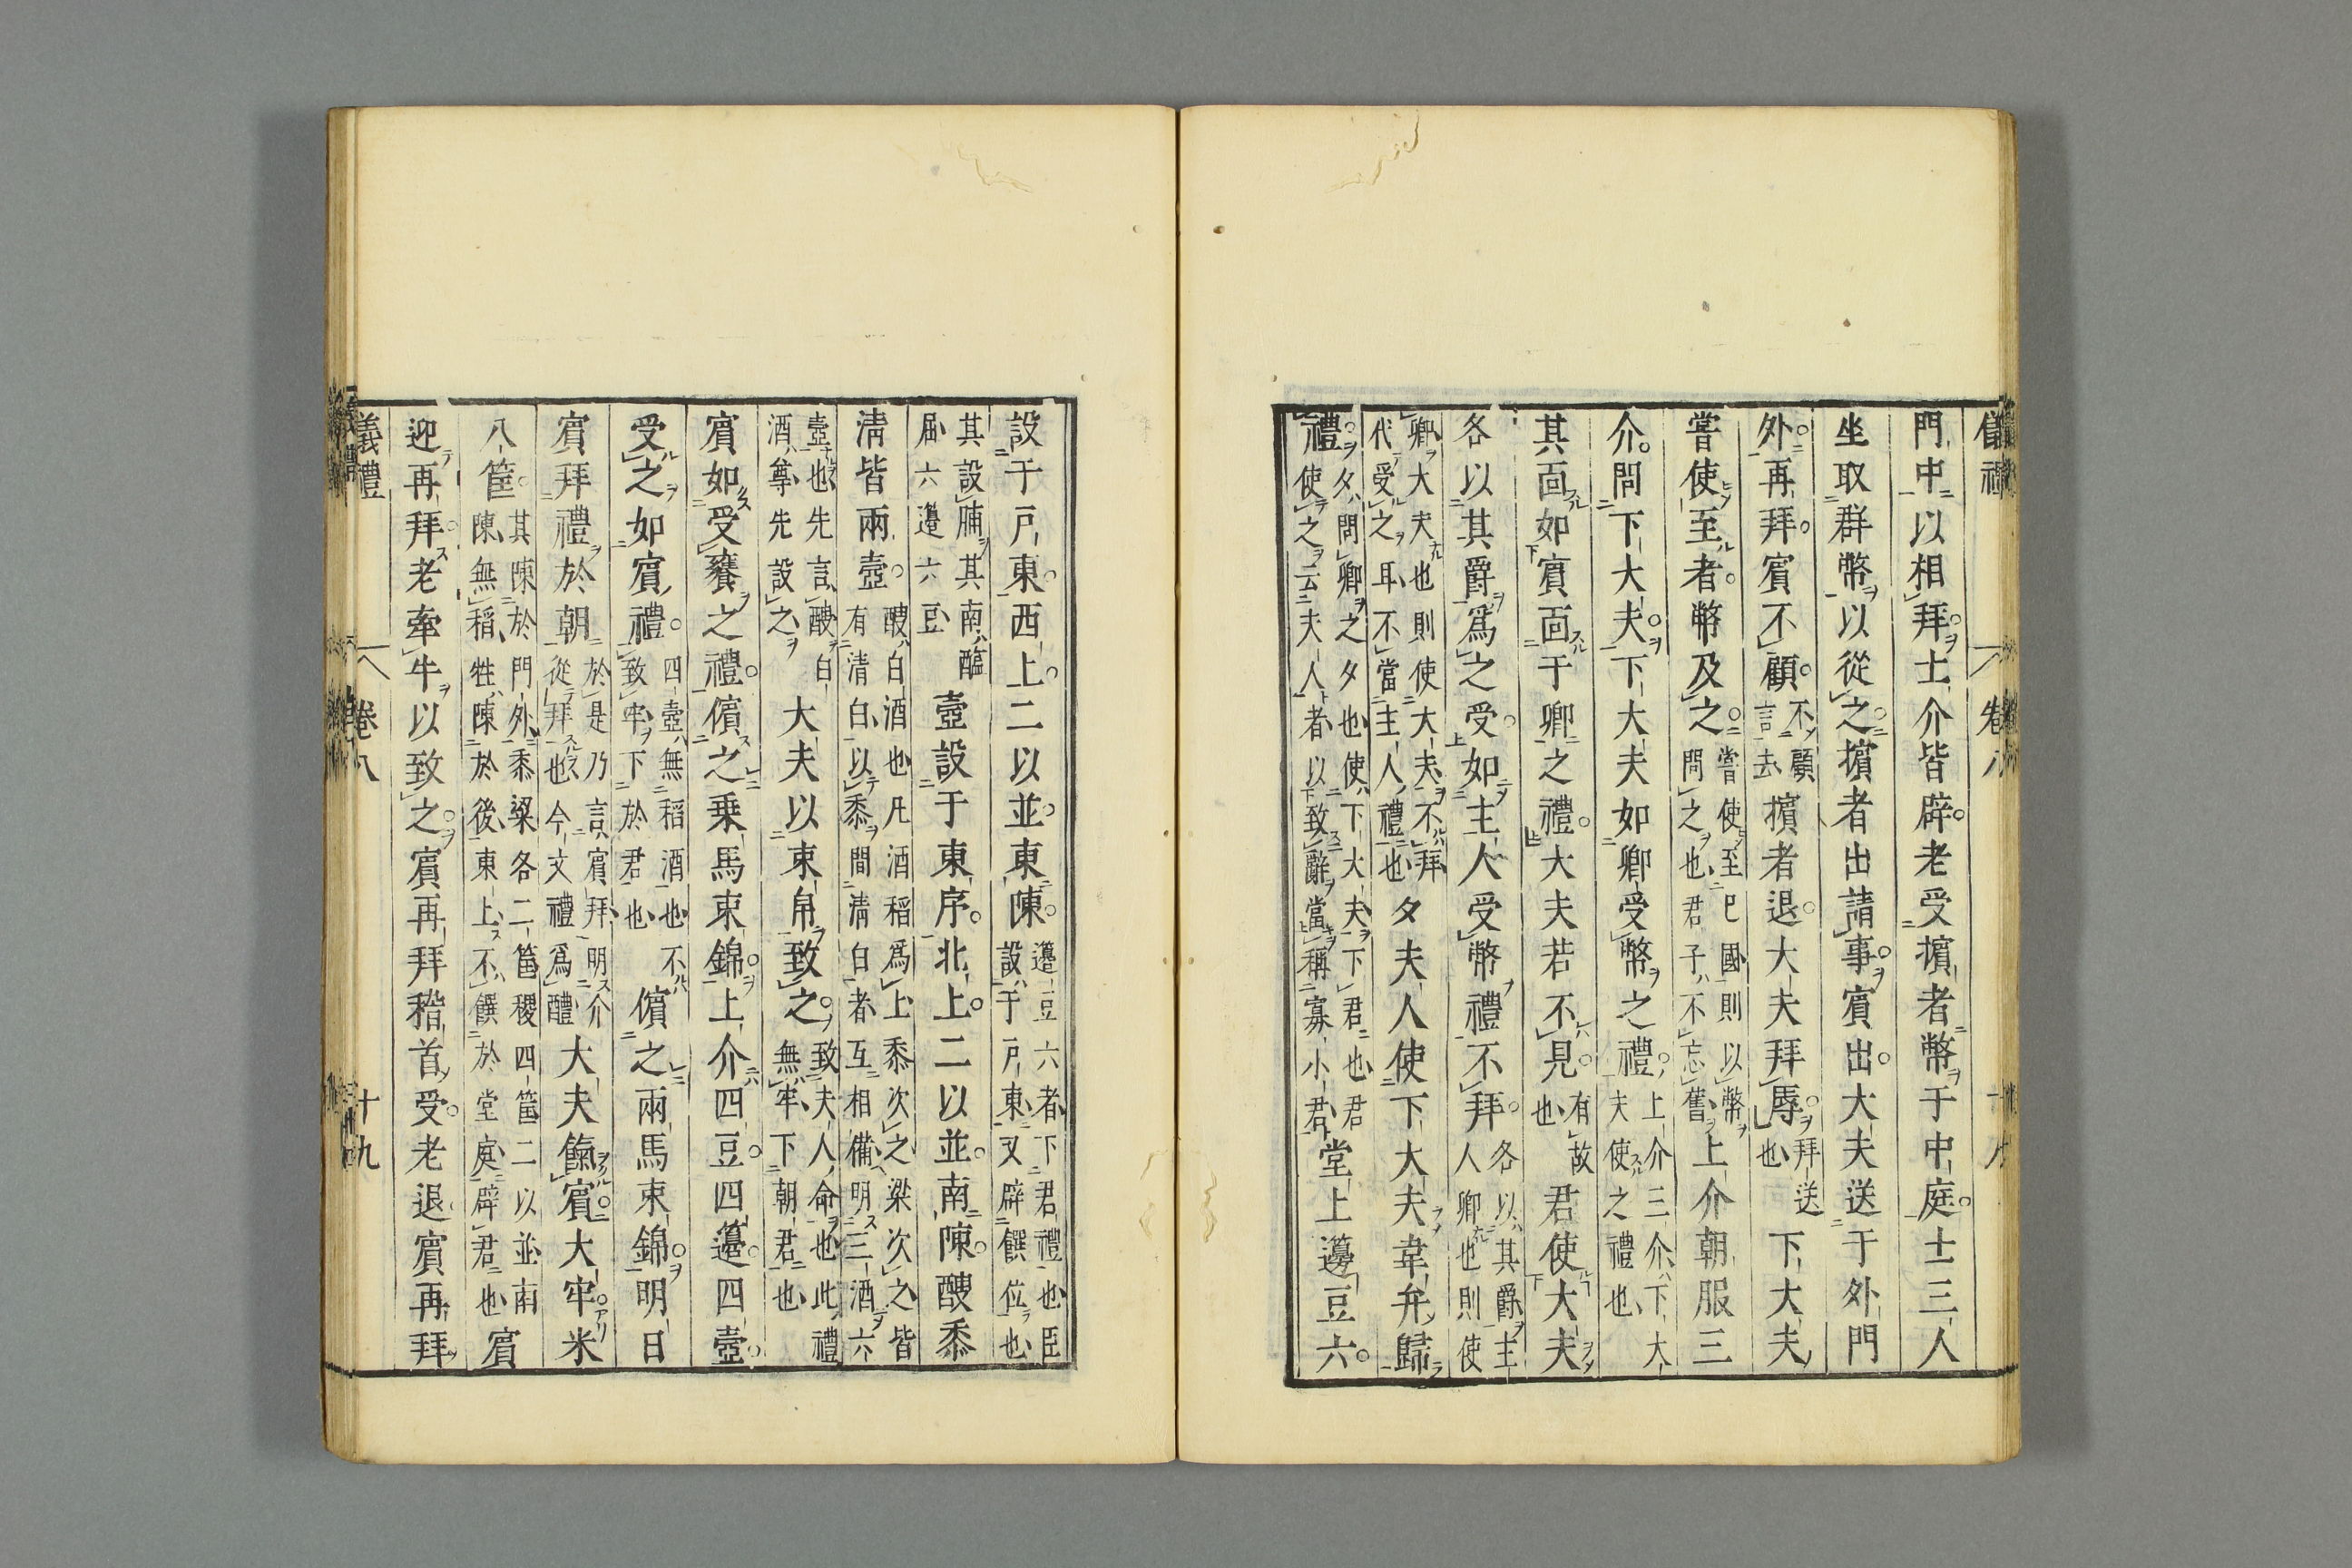 門中以相拜士介皆辟老受擯者幣于中庭士三人
坐取群幣以從之擯者出請事賓出大夫送于外門
外再拜賓不顧不顧言去擯者退大夫拜辱拜送也下大夫
嘗使至者幣及之嘗使至已國則以幣問之也君子不忘舊上介朝服三
介問下大夫下大夫如卿受幣之禮上介三介下大夫使之禮也
其面如賓面于卿之禮大夫若不見有故也君使大夫
各以其爵爲之受如主人受幣禮不拜各以其爵主人卿也則使
卿大夫也則使大夫不拜代受之耳不當主人禮也夕夫人使下大夫韋弁歸
禮夕問卿之夕也使下大夫下君也君使之云夫人者以致辭當稱寡小君堂上籩豆六
設于戶東西上二以並東陳籩豆六者下君禮也臣設于戶東又辟饌位也
其設脯其南醢屈六籩六豆壺設于東序北上二以並南陳醙黍
清皆兩壺醙白酒也凡酒稻爲上黍次之粱次之皆有清白以黍間清白者互相備明三酒六
壺也先言醙白酒尊先設之大夫以束帛致之致夫人命也此禮無牢下朝君也
賓如受饔之禮儐之乗馬束錦上介四豆四籩四壺
受之如賓禮四壺無稻酒也不致牢下於君也儐之兩馬束錦明日
賓拜禮於朝於是乃言賓拜明介從拜也今文禮爲醴大夫餼賓大牢米
八筐其陳於門外黍粱各二筐稷四筐二以並南陳無稻牲陳於後東上不饌於堂庭辟君也賓
迎再拜老牽牛以致之賓再拜稽首受老退賓再拜
義禮 卷八 十九